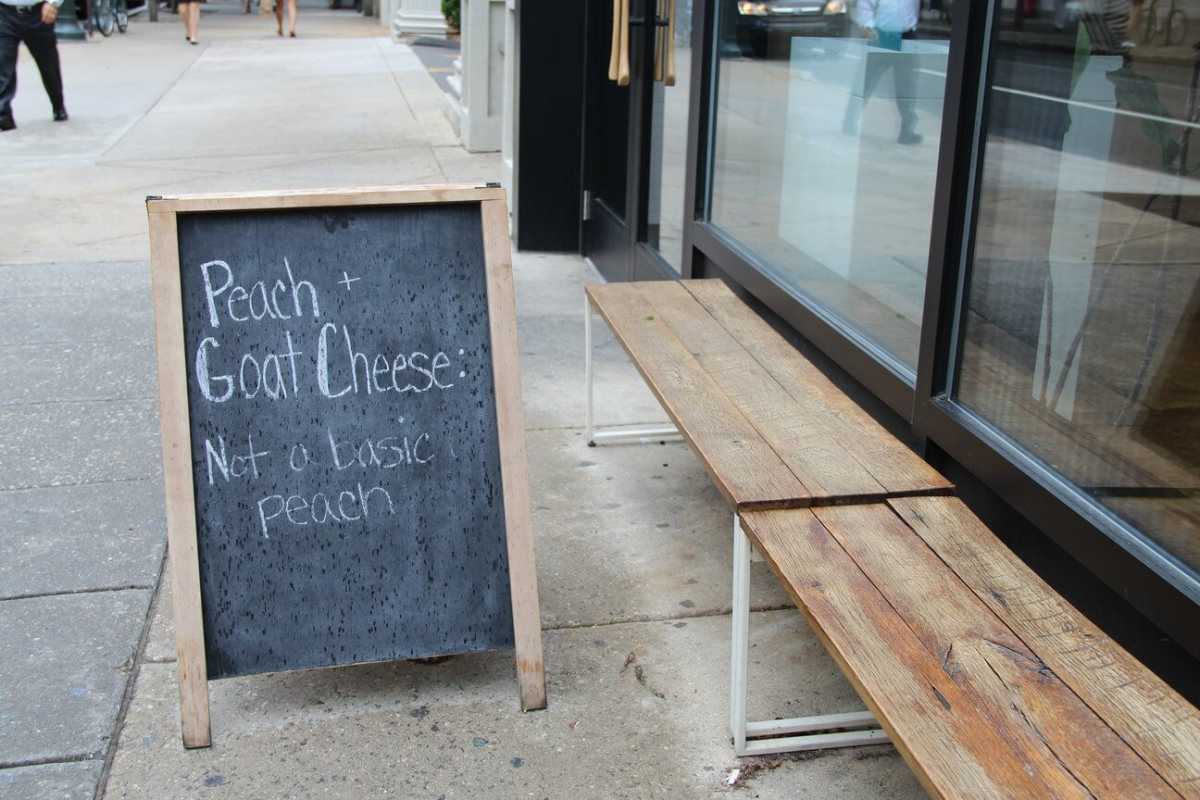 Peach +
Goat Cheese:
Not a basic
peach